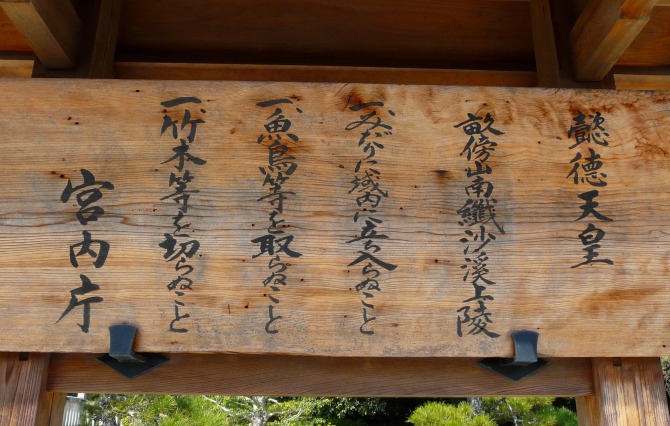 懿德天皇
畝傍山南纎沙溪上陵
一、みだりに域内に立ち入らぬこと
一、魚鳥等を取らぬこと
一、竹木等を切らぬこと
宮内庁